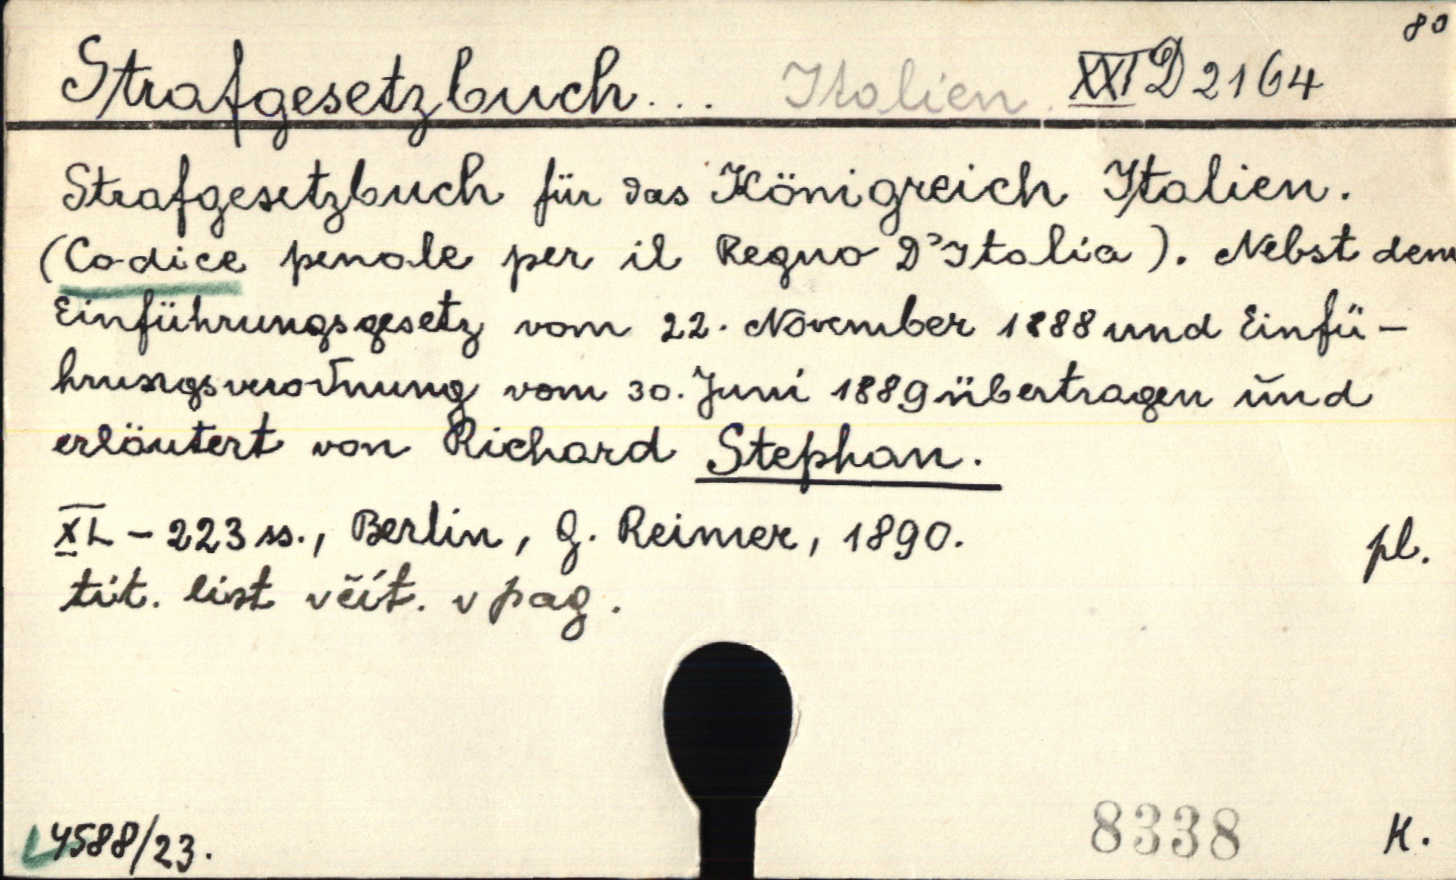 80
Strafgesetzbuch... Italien. XXI D 2164
Strafgesetzbuch für das Königreich Italien.
(Codice penale per il Regno D'Italia). Nebst dem
Einführungsgesetz vom 22. November 1888 und Einfü-
hrungsverordnung vom 30. Juni 1889 übertragen und
erläutert von Richard Stephan.
XL - 223 ss., Berlin, G. Reimer, 1890. pl.
tit. list včít. v pag.
4588/23. 8338 K.